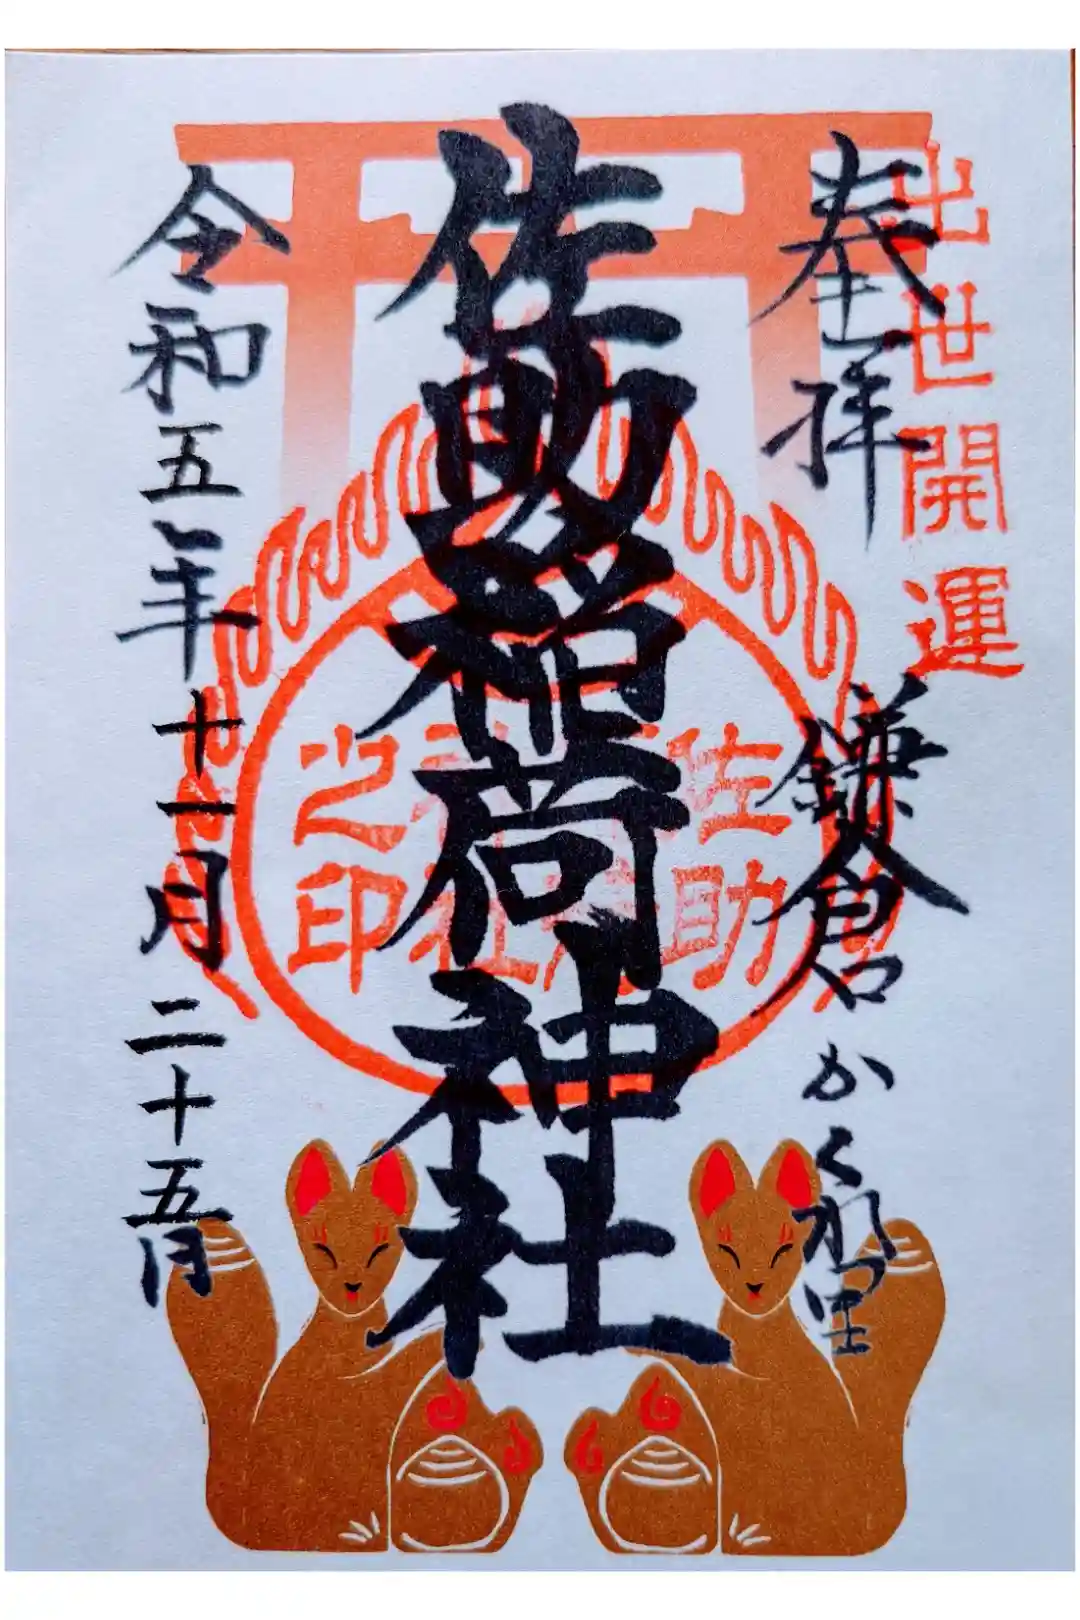 出世開運
奉拝
鎌倉かくれ里
佐助稲荷神社
佐助
之印
令和五年十一月二十五日